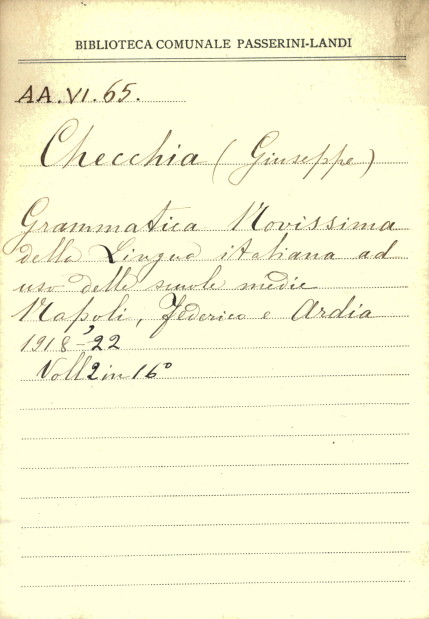 BIBLIOTECA COMUNALE PASSERINI-LANDI
AA.VI.65.
Checchia (Giuseppe)
Grammatica Novissima
della Lingua italiana ad
uso delle scuole medie
Napoli, Federico e Ardia
1918-'22
Voll 2 in 16°